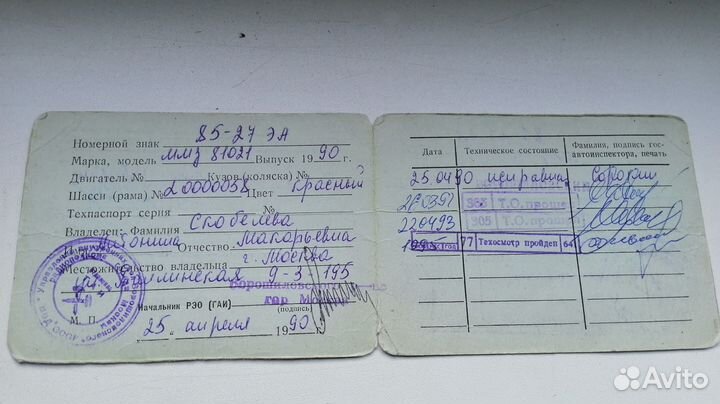 Номерной знак 85-27 ЭА
Марка, модель ММЗ 81021 Выпуск 1990 г.
Двигатель № Кузов (коляска) №
Шасси (рама) № 20000038 Цвет красный
Техпаспорт серия №
Владелец: Фамилия Скобелева
Отчество Макарьевна
Местожительство владельца г. Москва
9-3-195
Ворошиловского
гор
Начальник РЭО (ГАИ) (подпись)
М. П. „25" апреля 1990 г.
Дата Техническое состояние Фамилия, подпись гос-
автоинспектора, печать
25.04.90 исправна Сорокин
363 Т.О. проше
220493 305 Т.О. прошел
77 Техосмотр пройден 64
Avito